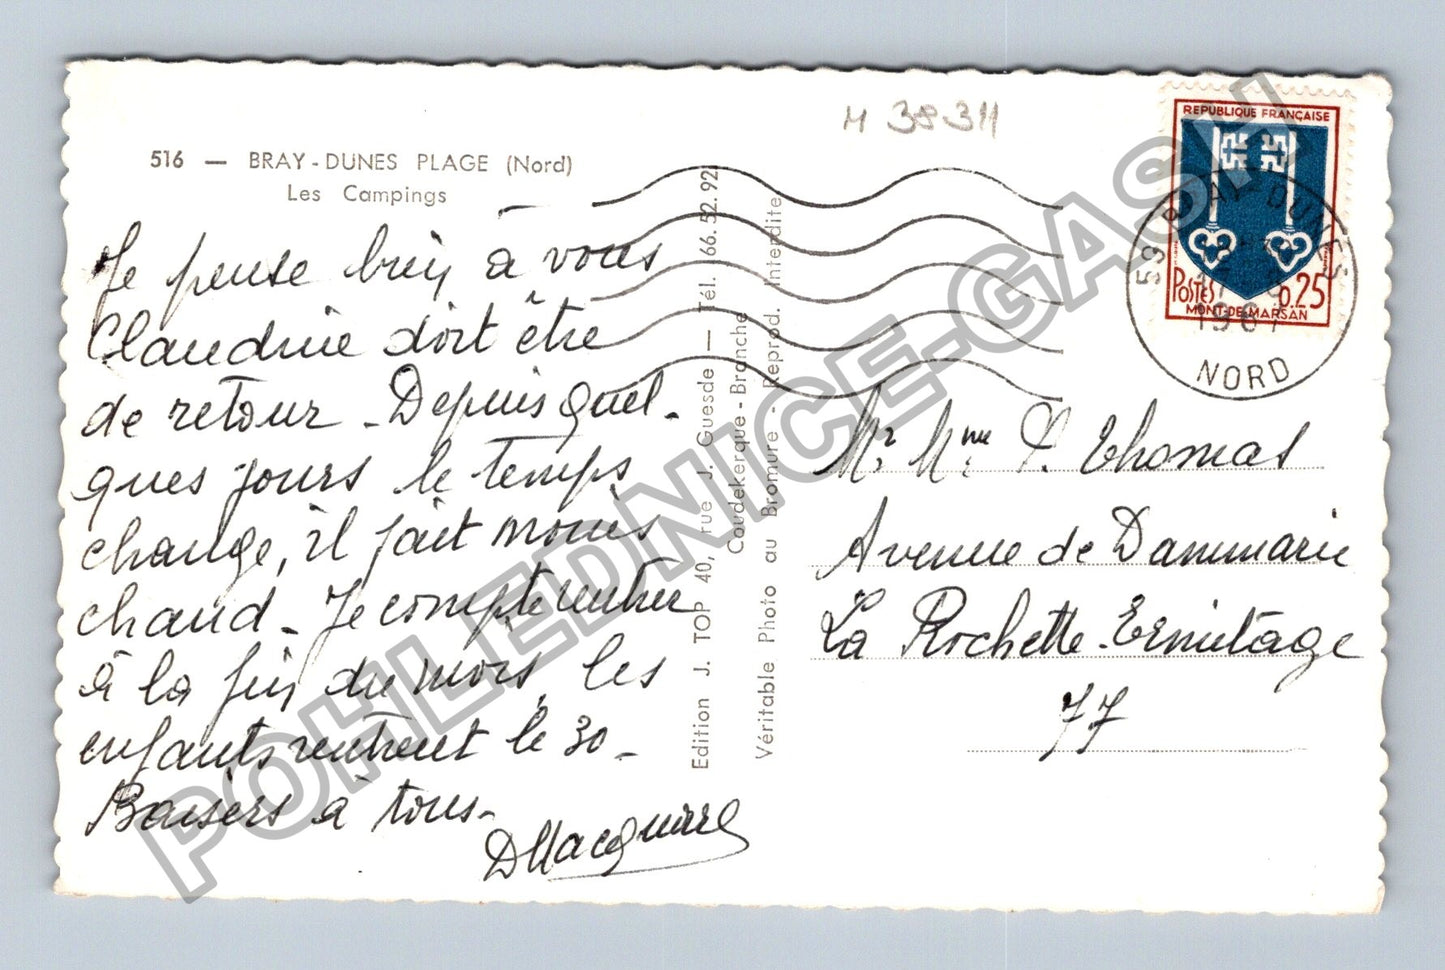 M 38311
516 — BRAY-DUNES PLAGE (Nord)
Les Campings
Je pense bien à vous
Claudine doit être
de retour - Depuis quel-
ques jours le temps
change, il fait moins
chaud - Je compte rentrer
à la fin du mois, les
enfants rentrent le 30 -
Baisers à tous -
DMacquirre
Edition J. TOP 40, rue J. Guesde — Tél. 66.52.92
Coudekerque-Branche
Véritable Photo au Bromure - Reprod. Interdite
REPUBLIQUE FRANÇAISE
POSTES 0,25
MONT-DE-MARSAN
59 BRAY-DUNES
1967
NORD
Mr Mme P. Thomas
Avenue de Dammarie
La Rochette-Ermitage
77
POHLEDNICE-GASH